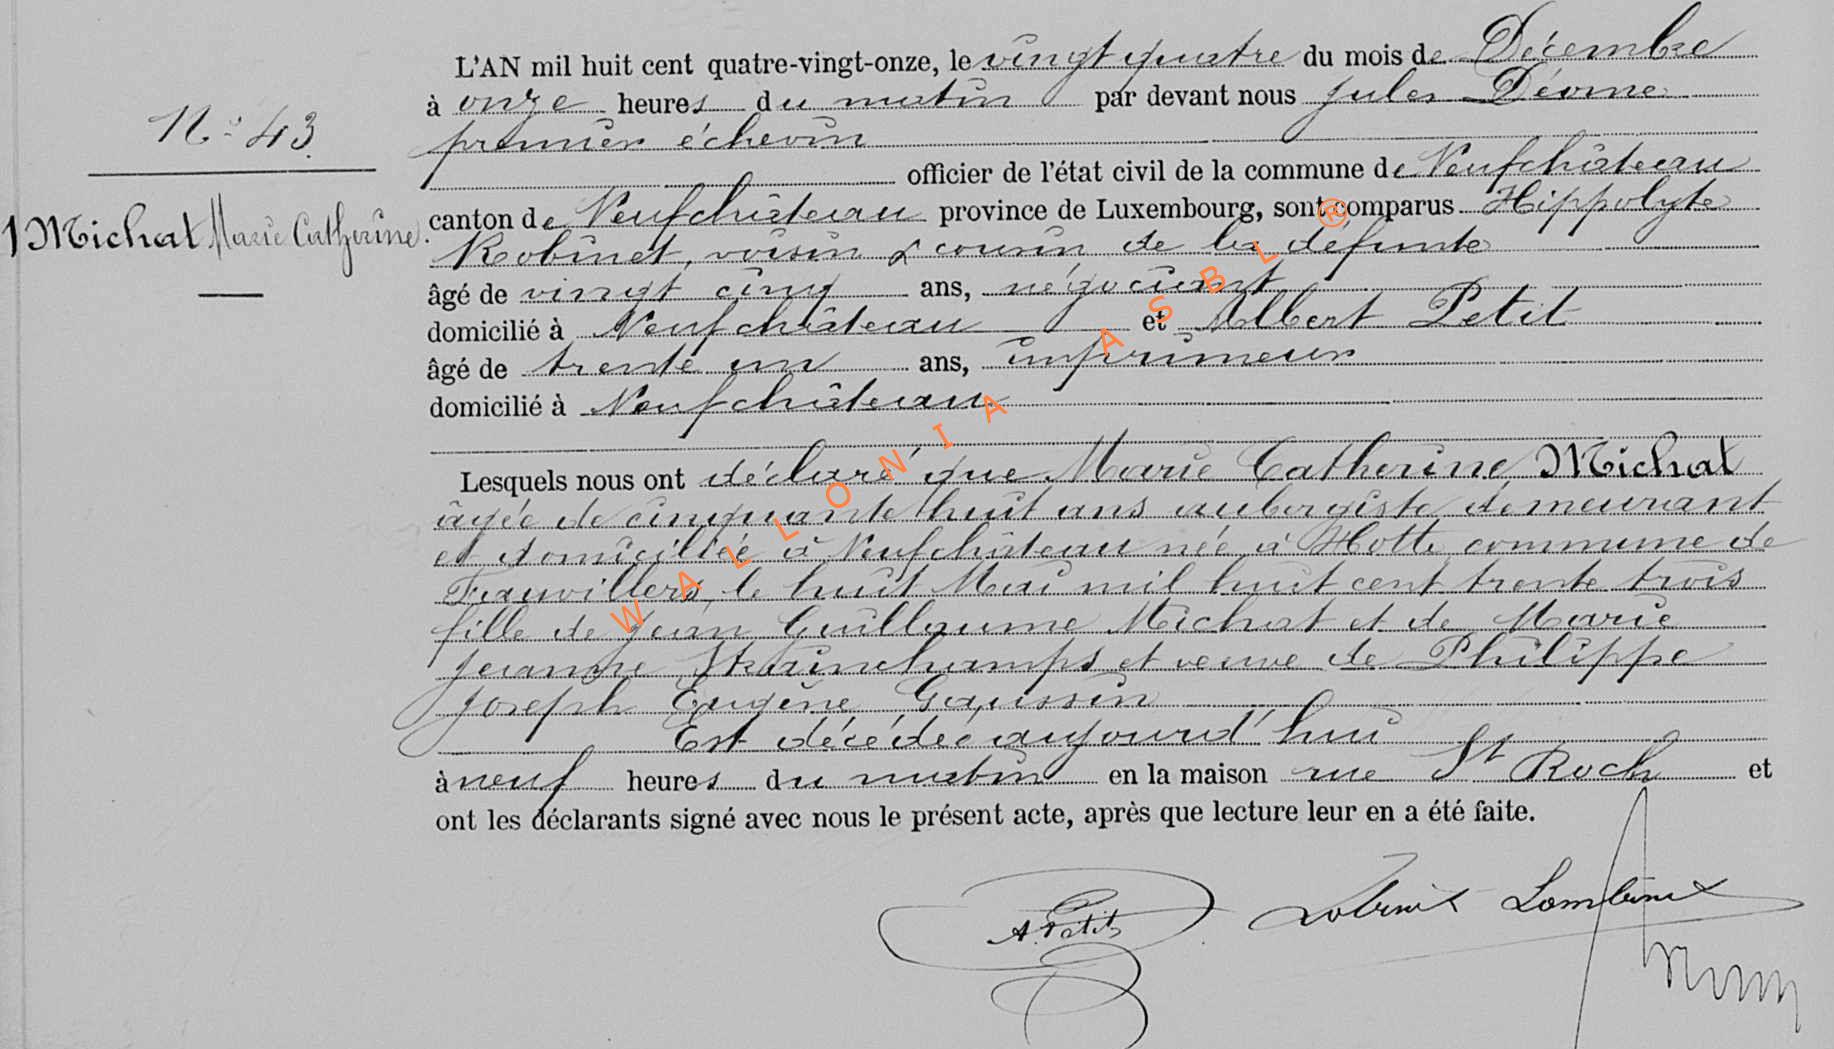 L'AN mil huit cent quatre-vingt-onze, le vingt quatre du mois de Décembre
à onze heures du matin par devant nous Jules Déome
premier échevin
officier de l'état civil de la commune de Neufchâteau
canton de Neufchâteau province de Luxembourg, sont comparus Hippolyte
Robinet, voisin & cousin de la défunte
âgé de vingt cinq ans, négociant
domicilié à Neufchâteau et Albert Petit
âgé de trente un ans, imprimeur
domicilié à Neufchâteau
Lesquels nous ont déclaré que Marie Catherine Michat
âgée de cinquante huit ans aubergiste demeurant
et domiciliée à Neufchâteau née à Hotte commune de
Fauvillers, le huit Mai mil huit cent trente trois
fille de Jean Guillaume Michat et de Marie
Jeanne Strainchamps et veuve de Philippe
Joseph Eugène Gaussin
Est décédée aujourd'hui
à neuf heures du matin en la maison rue St Roch et
ont les déclarants signé avec nous le présent acte, après que lecture leur en a été faite.
N° 43.
Michat Marie Catherine.
A. Petit Robinet
WALLONIA ASBL ®